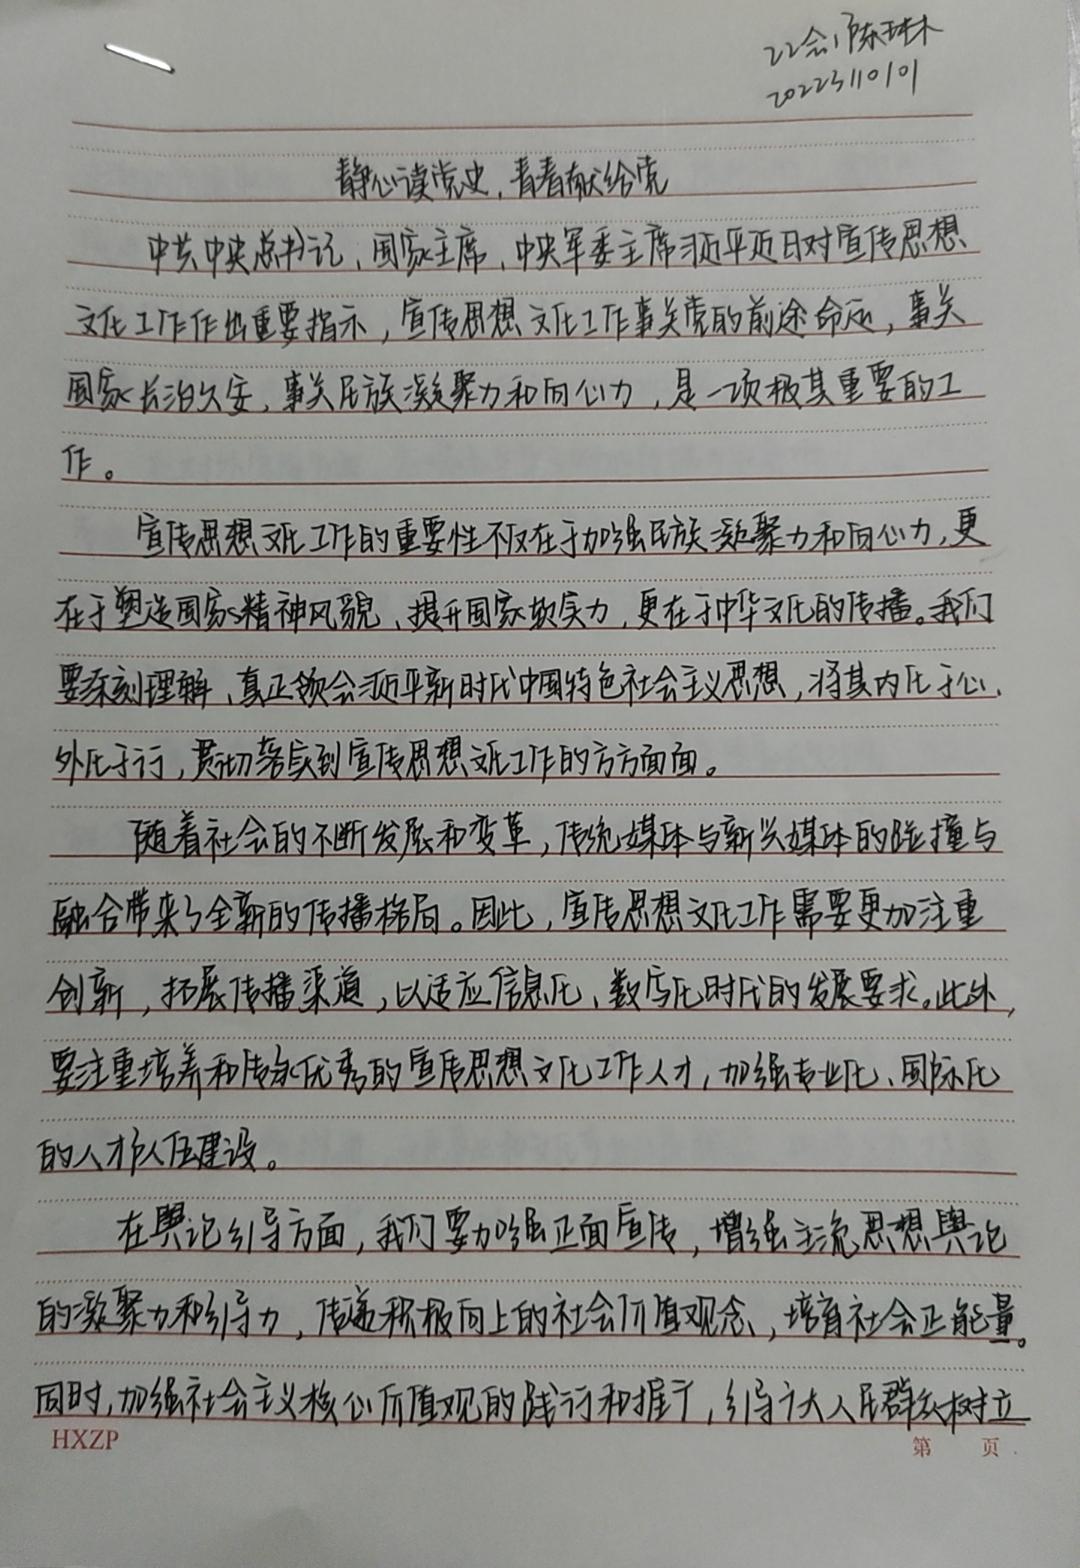 22会1陈琳
2022310101
静心读党史，青春献给党
中共中央总书记、国家主席、中央军委主席习近平近日对宣传思想
文化工作作出重要指示，宣传思想文化工作事关党的前途命运，事关
国家长治久安，事关民族凝聚力和向心力，是一项极其重要的工
作。
宣传思想文化工作的重要性不仅在于加强民族凝聚力和向心力，更
在于塑造国家精神风貌、提升国家软实力，更在于中华文化的传播。我们
要深刻理解、真正领会习近平新时代中国特色社会主义思想，将其内化于心、
外化于行，贯彻落实到宣传思想文化工作的方方面面。
随着社会的不断发展和变革，传统媒体与新兴媒体的碰撞与
融合带来了全新的传播格局。因此，宣传思想文化工作需要更加注重
创新，拓展传播渠道，以适应信息化、数字化时代的发展要求。此外，
要注重培养和传承优秀的宣传思想文化工作人才，加强专业化、国际化
的人才队伍建设。
在舆论引导方面，我们要加强正面宣传，增强主流思想舆论
的凝聚力和引导力，传递积极向上的社会价值观念，培育社会正能量。
同时，加强社会主义核心价值观的践行和推广，引导广大人民群众树立
HXZP
第 页